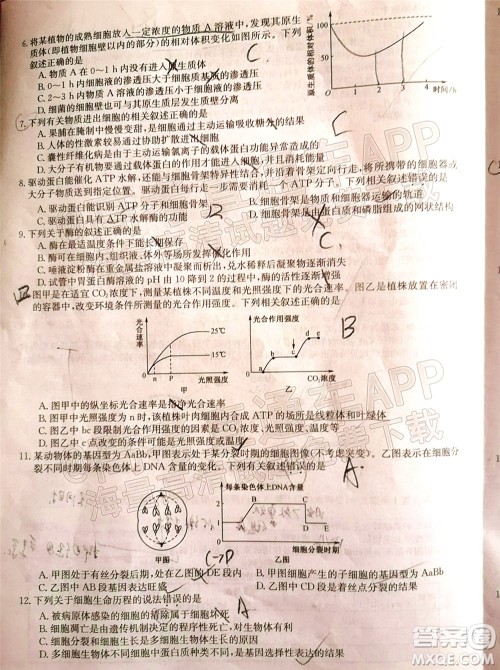 6.将某植物的成熟细胞放入一定浓度的物质A溶液中,发现其原生
质体(即植物细胞壁以内的部分)的相对体积变化如图所示。下列
叙述正确的是
A.物质A在0～1h内已经进入细胞
B.在0～1h内细胞液的渗透压
C.2～3h内物质A溶液的渗透压小于细胞液的渗透压
D.细菌的细胞也可以发生质壁分离
C
原生质体的相对体积/%
150
100
50
0 1 2 3 4
时间/h
7.下列有关物质进出细胞的相关叙述正确的是
A.果脯在腌制中慢慢变甜,是细胞通过主动运输吸收糖分的结果
B.人体内的激素较易通过协助扩散进出细胞
C.囊性纤维化病与主动运输氯离子的载体蛋白功能异常有关
D.大分子有机物要通过载体蛋白的作用才能进入细胞,并且消耗能量
C
8.驱动蛋白能催化ATP水解,还能与细胞骨架特异性结合,并沿着骨架定向行走,将所携带的细胞器或
大分子物质送到指定位置。驱动蛋白每行走一步需要消耗一个ATP分子。下列相关叙述错误的是
A.驱动蛋白能识别ATP分子和细胞骨架
B.细胞骨架是物质和细胞器运输的轨道
C.驱动蛋白具有ATP水解酶的功能
D.细胞骨架是由蛋白质和磷脂组成的网状结构
9.下列关于酶的叙述,正确的是
A.酶在最适温度条件下能长期保存
B.酶可以在细胞、组织液、体外等场所发挥催化作用
C.唾液淀粉酶遇重金属盐溶液中凝聚而析出,兑水稀释后凝聚物消失,酶活性逐渐恢复
D.唾液中胃蛋白酶溶液的pH由10降到2的过程中,酶的活性逐渐增强
C.
图甲是在适宜CO₂浓度下,测量某植株不同温度和光照强度下的光合速率。图乙是植株放置在密闭
的容器中,改变环境条件所测量的光合作用强度。下列相关叙述正确的是
B
光合速率
25℃
15℃
n P 光照强度
甲
光合作用强度
a b c d e
CO₂浓度
乙
A.图甲中的纵坐标光合速率是指净光合速率
B.图甲中光照强度为n时,该植株叶肉细胞合成ATP的场所是线粒体和叶绿体
C.图乙中bc段限制光合作用强度的因素是CO₂浓度
D.图乙中c点改变的条件可能是光照强度或温度
11.某动物体的基因型为AaBb,甲图表示处于某分裂时期的细胞图像(不考虑突变)。乙图表示在细胞分
裂不同时期每条染色体上DNA含量的变化。下列有关叙述错误的是
A.
甲图
每条染色体上DNA含量
A B C D E
细胞分裂时期
乙图
C→D
A.甲图处于有丝分裂后期,处在乙图的DE段内
B.甲图产生的子细胞的基因型为AaBb
C.甲图基因表达旺盛
D.乙图中CD段对应的着丝粒分裂
12.下列关于细胞生命历程的说法错误的是
A
A.被病原体感染的细胞的清除属于细胞坏死
B.细胞凋亡是由遗传机制决定的程序性死亡